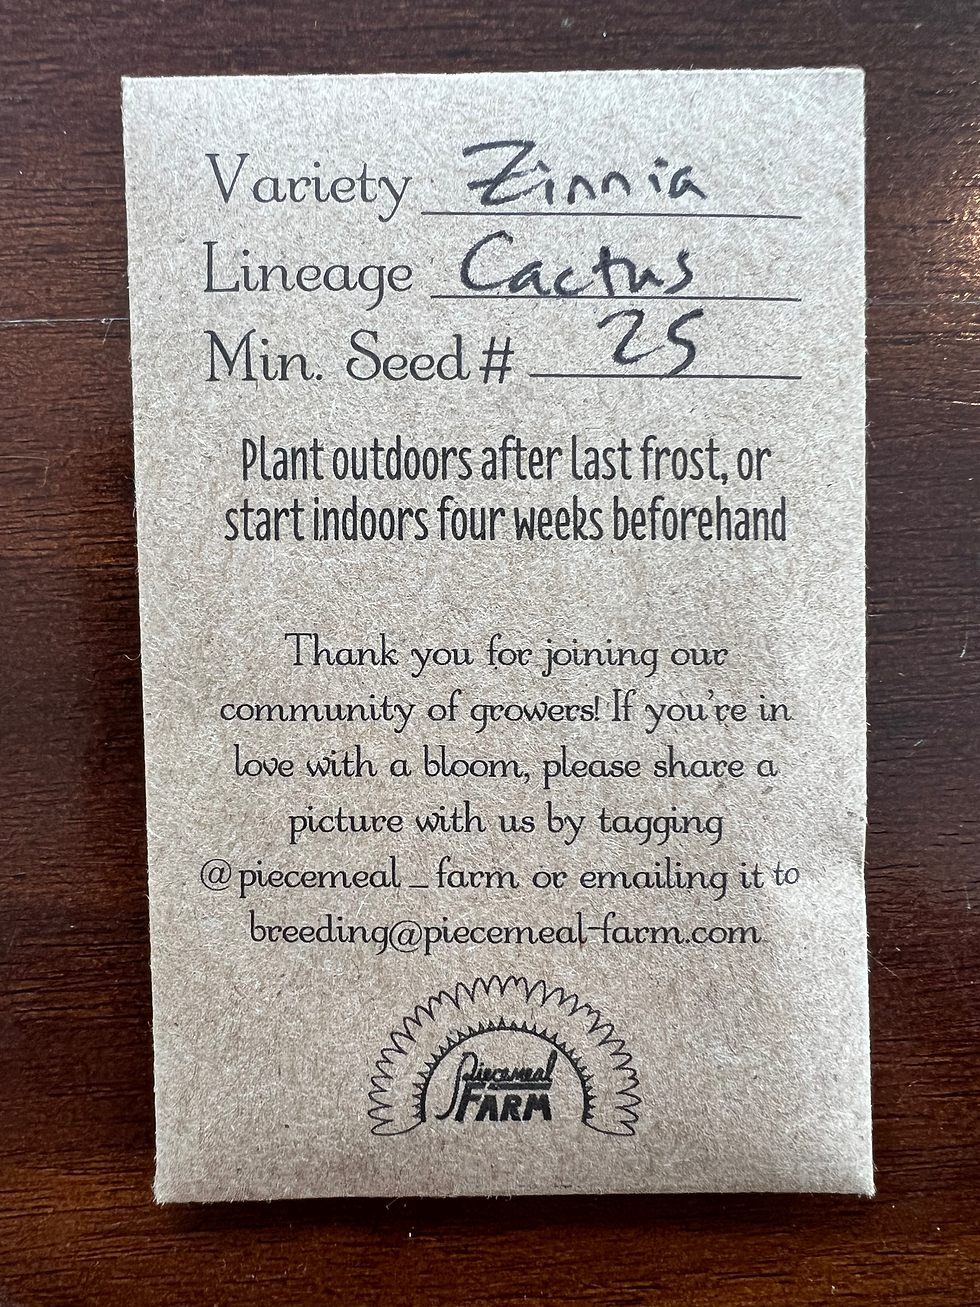 Variety Zinnia
Lineage Cactus
Min. Seed # 25
Plant outdoors after last frost, or
start indoors four weeks beforehand
Thank you for joining our
community of growers! If you're in
love with a bloom, please share a
picture with us by tagging
@piecemeal_farm or emailing it to
breeding@piecemeal-farm.com
Piecemeal
FARM